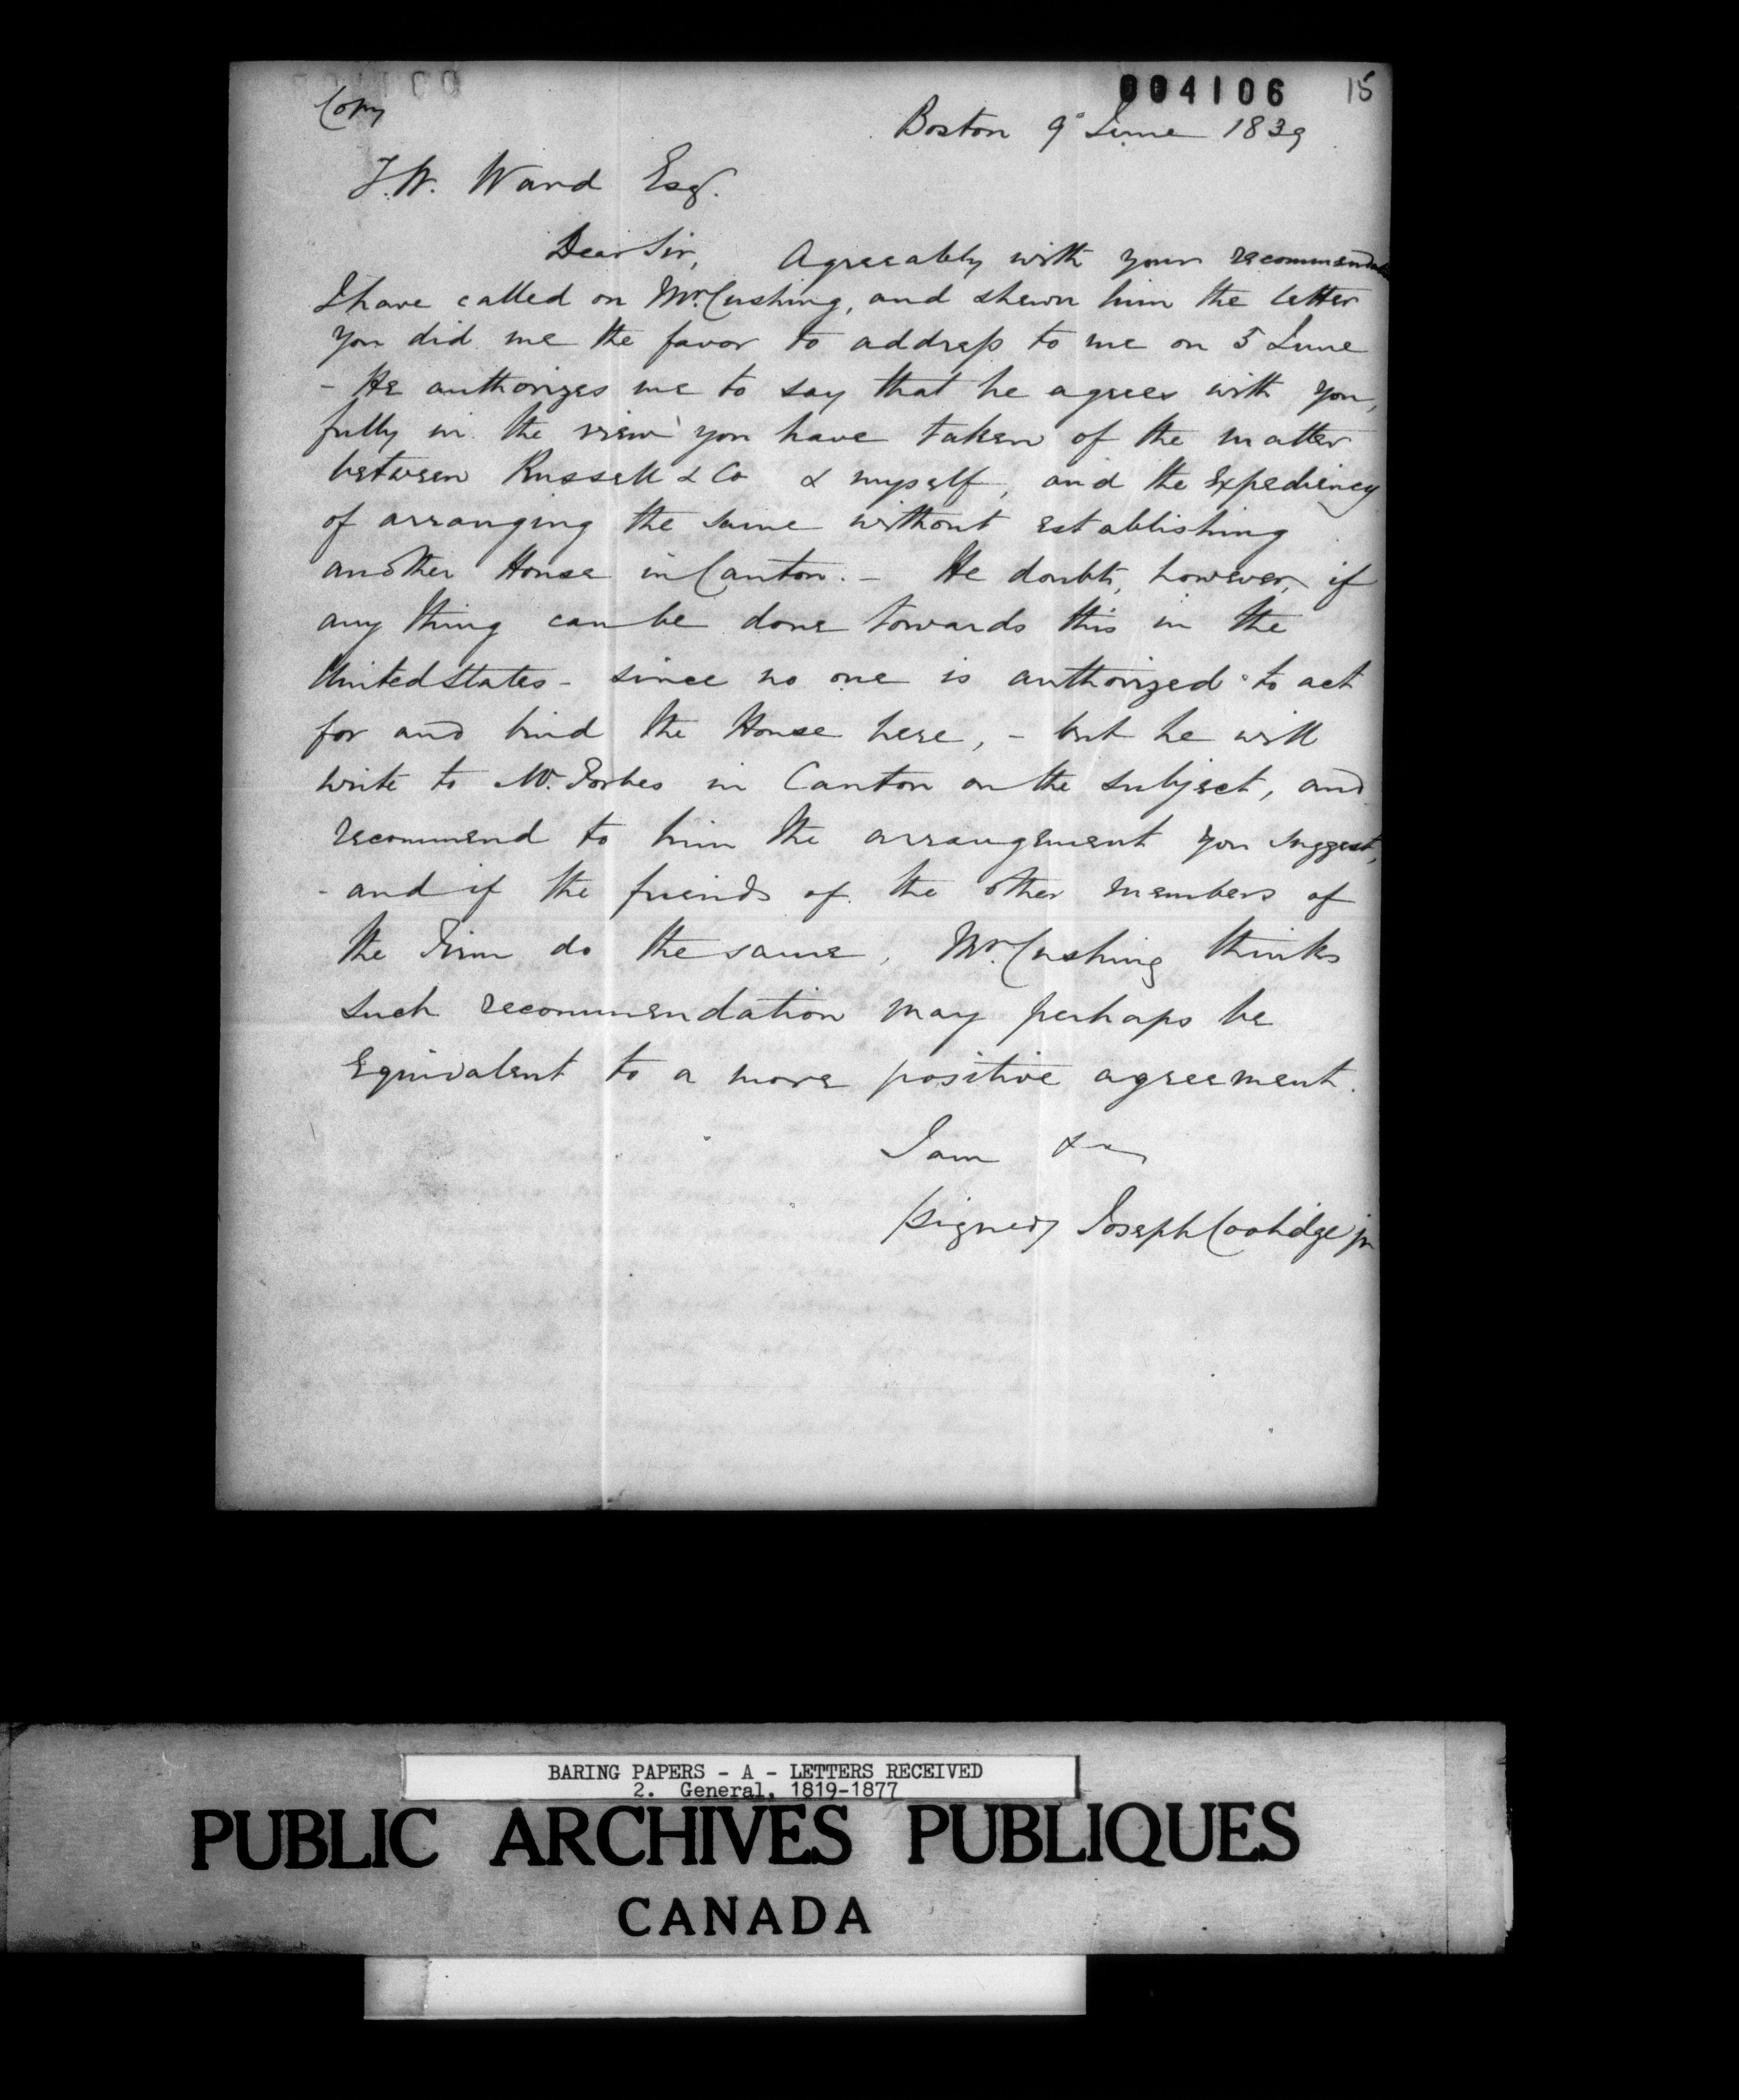 004106 15
Copy
Boston 9 June 1839
T.W. Ward Esqr.
Dear Sir, Agreeably with your recommendation
I have called on Mr. Cushing, and shewn him the letter
you did me the favor to address to me on 5 June
- He authorizes me to say that he agrees with you,
fully in the view you have taken of the matter
between Russell & Co & myself, and the expediency
of arranging the same without establishing
another House in Canton. - He doubts, however, if
any thing can be done towards this in the
United States - since no one is authorized to act
for and bind the House here, - but he will
write to Mr. Forbes in Canton on the subject, and
recommend to him the arrangement you suggest,
- and if the friends of the other members of
the Firm do the same, Mr. Cushing thinks
such recommendation may perhaps be
equivalent to a more positive agreement.
I am &c
(signed) Joseph Coolidge jr
BARING PAPERS - A - LETTERS RECEIVED
2. General, 1819-1877
PUBLIC ARCHIVES PUBLIQUES
CANADA